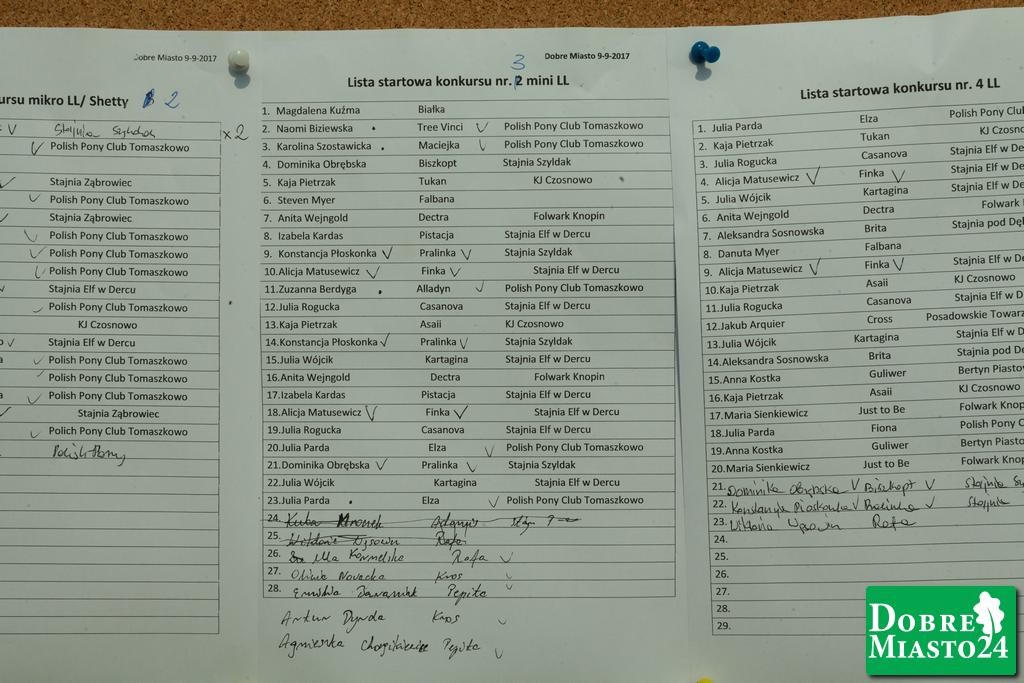 Dobre Miasto 9-9-2017
ursu mikro LL/ Shetty 2
V x2
V Polish Pony Club Tomaszkowo
Stajnia Ząbrowiec
V Polish Pony Club Tomaszkowo
Stajnia Ząbrowiec
V Polish Pony Club Tomaszkowo
V Polish Pony Club Tomaszkowo
V Polish Pony Club Tomaszkowo
Stajnia Elf w Dercu
Polish Pony Club Tomaszkowo
KJ Czosnowo
V Stajnia Elf w Dercu
V Polish Pony Club Tomaszkowo
Polish Pony Club Tomaszkowo
V Polish Pony Club Tomaszkowo
Stajnia Ząbrowiec
V Polich Pony Club Tomaszkowo
Dobre Miasto 9-9-2017
3
Lista startowa konkursu nr. 2 mini LL
1. Magdalena Kuźma Białka
2. Naomi Biziewska Tree Vinci V Polish Pony Club Tomaszkowo
3. Karolina Szostawicka Maciejka V Polish Pony Club Tomaszkowo
4. Dominika Obrębska Biszkopt Stajnia Szyldak
5. Kaja Pietrzak Tukan KJ Czosnowo
6. Steven Myer Falbana
7. Anita Wejngold Dectra Folwark Knopin
8. Izabela Kardas Pistacja Stajnia Elf w Dercu
9. Konstancja Płoskonka V Pralinka V Stajnia Szyldak
10.Alicja Matusewicz V Finka V Stajnia Elf w Dercu
11.Zuzanna Berdyga Alladyn V Polish Pony Club Tomaszkowo
12.Julia Rogucka Casanova Stajnia Elf w Dercu
13.Kaja Pietrzak Asaii KJ Czosnowo
14.Konstancja Płoskonka V Pralinka V Stajnia Szyldak
15.Julia Wójcik Kartagina Stajnia Elf w Dercu
16.Anita Wejngold Dectra Folwark Knopin
17.Izabela Kardas Pistacja Stajnia Elf w Dercu
18.Alicja Matusewicz V Finka V Stajnia Elf w Dercu
19.Julia Rogucka Casanova Stajnia Elf w Dercu
20.Julia Parda Elza V Polish Pony Club Tomaszkowo
21.Dominika Obrębska V Pralinka V Stajnia Szyldak
22.Julia Wójcik Kartagina Stajnia Elf w Dercu
23.Julia Parda Elza V Polish Pony Club Tomaszkowo
24. Kuba
25. Rafa
26. Rafa V
27. Oliwia Nowacka Kros V
28. Pepita V
Artur Dynda Kros V
Agnieszka Pepita V
Lista startowa konkursu nr. 4 LL
1. Julia Parda Elza Polish Pony Clu
2. Kaja Pietrzak Tukan KJ Czosnowo
3. Julia Rogucka Casanova Stajnia Elf w De
4. Alicja Matusewicz V Finka V Stajnia Elf w De
5. Julia Wójcik Kartagina Stajnia Elf w De
6. Anita Wejngold Dectra Folwark
7. Aleksandra Sosnowska Brita Stajnia pod Dę
8. Danuta Myer Falbana
9. Alicja Matusewicz V Finka V Stajnia Elf w De
10.Kaja Pietrzak Asaii KJ Czosnowo
11.Julia Rogucka Casanova Stajnia Elf w D
12.Jakub Arquier Cross Posadowskie Towarz
13.Julia Wójcik Kartagina Stajnia Elf w D
14.Aleksandra Sosnowska Brita Stajnia pod De
15.Anna Kostka Guliwer Bertyn Piastov
16.Kaja Pietrzak Asaii KJ Czosnowo
17.Maria Sienkiewicz Just to Be Folwark Knop
18.Julia Parda Fiona Polish Pony C
19.Anna Kostka Guliwer Bertyn Piasto
20.Maria Sienkiewicz Just to Be Folwark Knop
21. Dominika Obrębska V Biszkopt V Stajnia
22. Konstancja Płoskonka V Pralinka V Stajnia
23. Wiktoria Rafa
24.
25.
26.
27.
28.
29.
DOBRE
MIASTO24